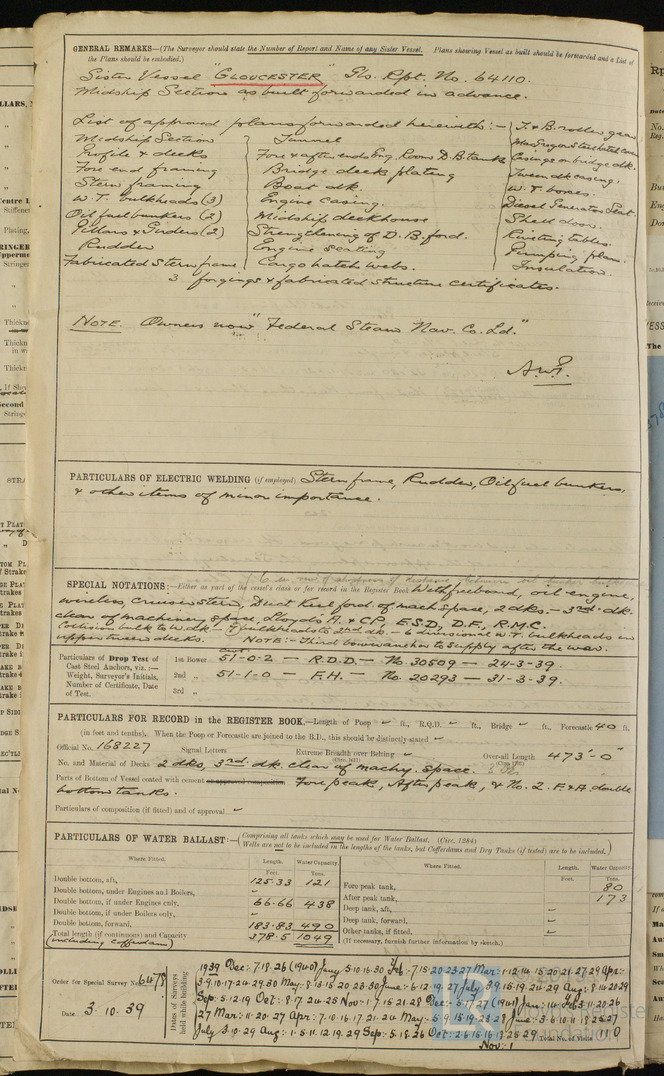 GENERAL REMARKS—(The Surveyor should state the Number of Report and Name of any Sister Vessel. Plans showing Vessel as built should be forwarded and a List of
the Plans should be embodied.)
Sister Vessel "GLOUCESTER" Gls. Rpt. No. 64110.
Midship Section as built forwarded in advance.
List of approved plans forwarded herewith:—
Midship Section
Profile & decks
Fore end framing
Stern framing
W.T. bulkheads (3)
Oil fuel bunkers (2)
Pillars & Girders (2)
Rudder
Fabricated Stern frame
Tunnel
Fore & after ends Eng. Room D.B. tanks
Bridge deck plating
Boat dk.
Engine casing.
Midship deckhouse
Strengthening of D.B. ford.
Engine seating
Cargo hatch webs.
T. & B. rollers gear
Casings on bridge dk.
Tween dk casing.
W.T. boxes
Diesel Generators Seat.
Shell door.
Riveting tables.
Pumping plan.
Insulation.
3 forgings & fabricated structure certificates.
NOTE. Owners now "Federal Steam Nav. Co. Ld."
PARTICULARS OF ELECTRIC WELDING (if employed) Stern frame, Rudder, Oil fuel bunkers,
& other items of minor importance.
SPECIAL NOTATIONS:—Either as part of the vessel's class or for record in the Register Book With freeboard, oil engine,
wireless, cruiser stern, Duct Keel ford. of mach space, 2 dks.— 3rd. dk.
clear of machinery space, Lloyds A. & C.P., E.S.D., D.F., R.M.C.
Collision bulk to W. dk.— (7) bulkheads to 2nd dk.— 6 divisional W.T. bulkheads in
upper tween decks. NOTE:— Third bower anchor to supply after the war.
Particulars of Drop Test of
Cast Steel Anchors, viz.:—
Weight, Surveyor's Initials,
Number of Certificate, Date
of Test.
1st Bower 51-0-2 — R.D.D.— No. 30509 — 24-3-39.
2nd „ 51-1-0 — F.H.— No. 20293 — 31-3-39.
3rd „
PARTICULARS FOR RECORD in the REGISTER BOOK.—Length of Poop ft., R.Q.D. ft., Bridge ft., Forecastle 40 ft.
(in feet and tenths). When the Poop or Forecastle are joined to the B.D., this should be distinctly stated
Official No. 168227 Signal Letters Extreme Breadth over Belting Over-all Length 473'-0"
No. and Material of Decks 2 dks, 3rd. dk. clear of machy. space.
Parts of Bottom of Vessel coated with cement or approved composition Fore peak, After peak, & No. 2 F. & A. double
bottom tanks.
Particulars of composition (if fitted) and of approval
PARTICULARS OF WATER BALLAST:—(Comprising all tanks which may be used for Water Ballast. (Circ. 1284)
Wells are not to be included in the lengths of the tanks, but Cofferdams and Dry Tanks (if tested) are to be included.)
Where Fitted. Length. Water Capacity. Where Fitted. Length. Water Capacity
Feet. Tons. Feet. Tons.
Double bottom, aft, 125.33 121
Double bottom, under Engines and Boilers,
Double bottom, if under Engines only, 66.66 438
Double bottom, if under Boilers only,
Double bottom, forward, 183.83 490
Total length (if continuous) and Capacity 378.5 1049
(including cofferdam)
Fore peak tank, 80
After peak tank, 173
Deep tank, aft,
Deep tank, forward,
Other tanks, if fitted,
(If necessary, furnish further information by sketch.)
Order for Special Survey No. 6478
Date 3.10.39
Dates of Surveys
held while building
1939 Dec:- 7.18.26 (1940) Jany 5.10.16.30 Feb:- 7.15.20.23.27 Mar:- 1.12.14.15.20.21.27.29 Apr:-
3.9.10.17.24.29.30 May:- 8.15.15.20.23.30 June:- 6.12.19.27 July 3.9.15.19.24.29 Aug:- 8.14.20.29
Sep:- 5.12.19 Oct:- 8.17.24.25 Nov:- 1.7.15.21.28 Dec:- 5.17.27 (1941) Jan:- 14 Feb 3.11.20.26
27 Mar:- 11.20.27 Apr:- 7.10.16.17.21.24 May:- 5.9.15.19.23.28 June:- 3.6.10.11.18.25.27
July 3.10.29 Aug:- 1.5.11.12.19.29 Sep:- 5.18.26 Oct:- 2.6.15.16.18.25.29
Nov:- 1
Total No. of Visits 110